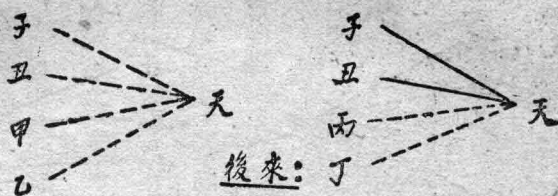 子
丑
甲
乙
天
後來：
子
丑
丙
丁
天